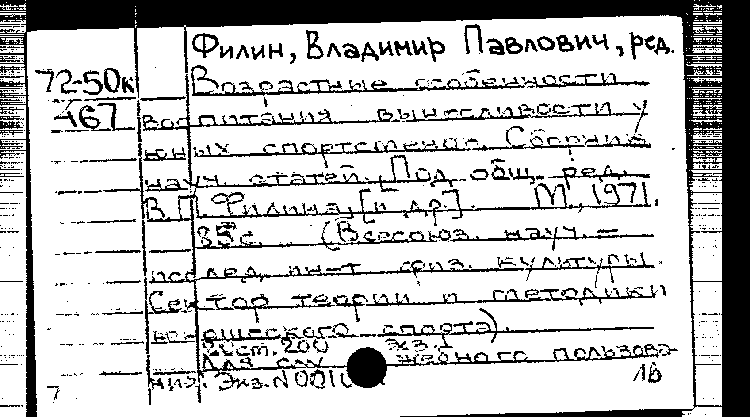 Филин, Владимир Павлович, ред.
72-50к Возрастные особенности
467 воспитания выносливости у
юных спортсменов. Сборник
науч. статей. Под общ. ред.
В.П. Филина, [и др]. М., 1971.
85 с. (Всесоюз. науч.-
исслед. ин-т физ. культуры.
Сектор теории и методики
юношеского спорта).
200 экз.
Для служебного пользова-
ния. Экз. N
1б
7